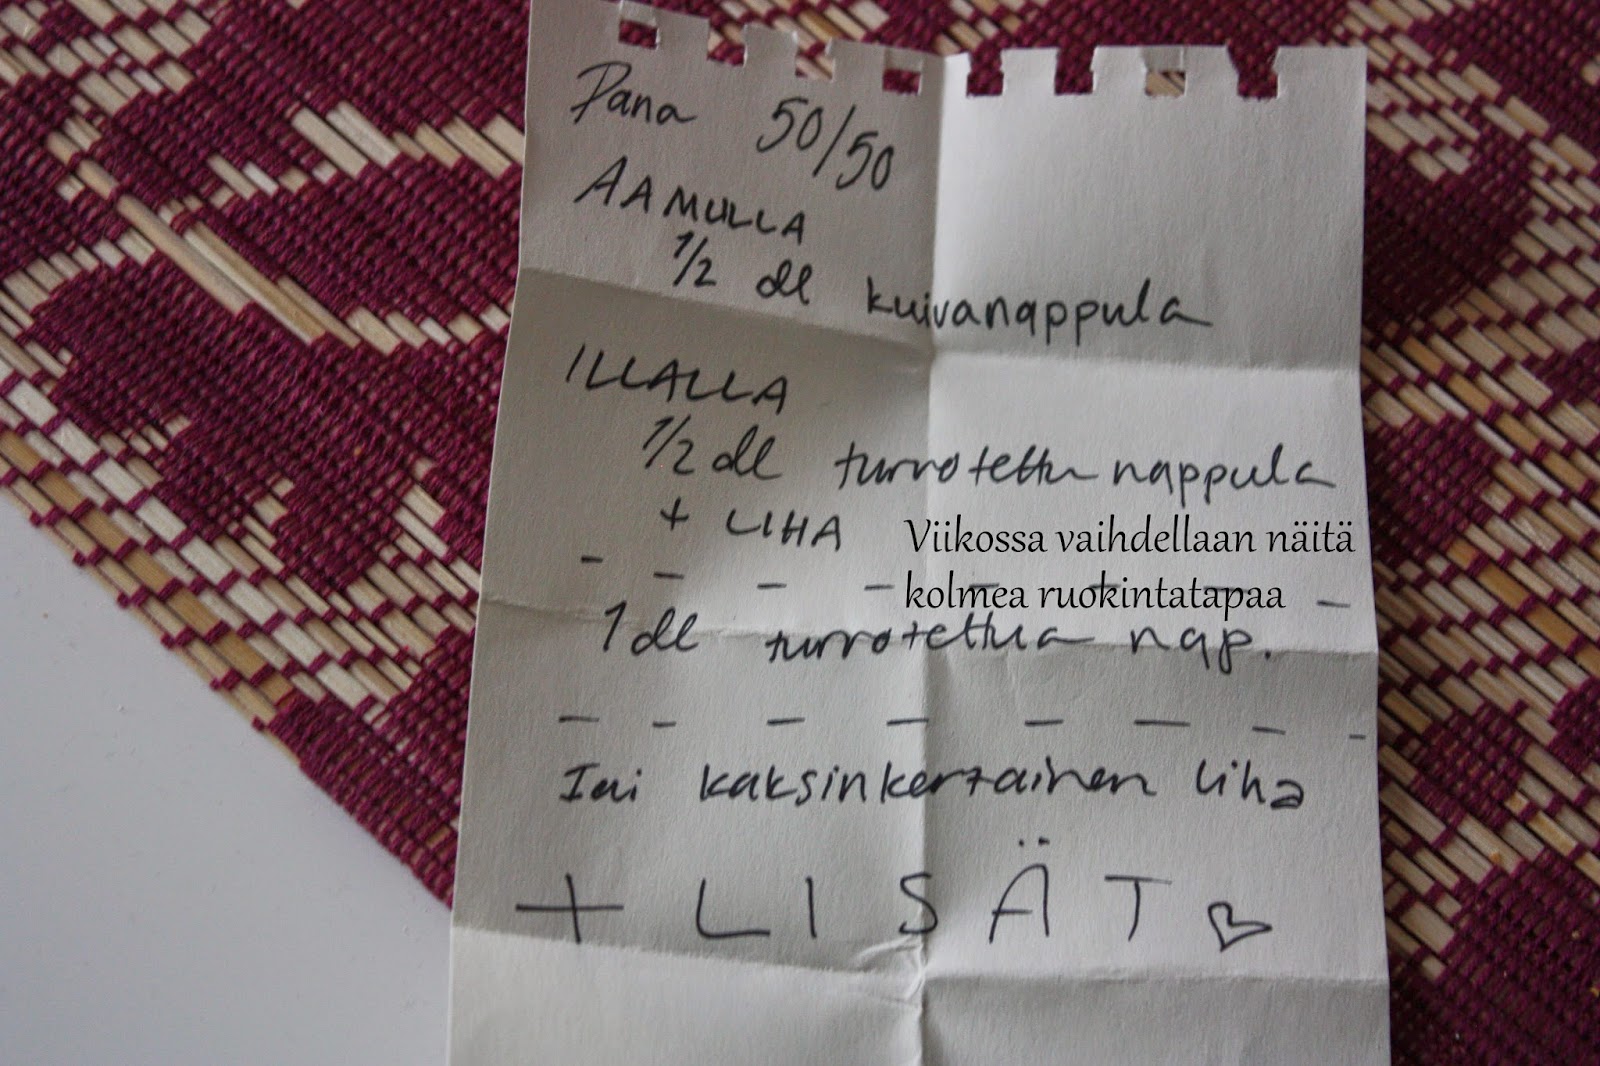 Pana 50/50
AAMULLA
1/2 dl kuivanappula
ILLALLA
1/2 dl turvotettu nappula
+ LIHA
Viikossa vaihdellaan näitä
kolmea ruokintatapaa
1 dl turvotettua nap.
kaksinkertainen liha
+ LISÄT